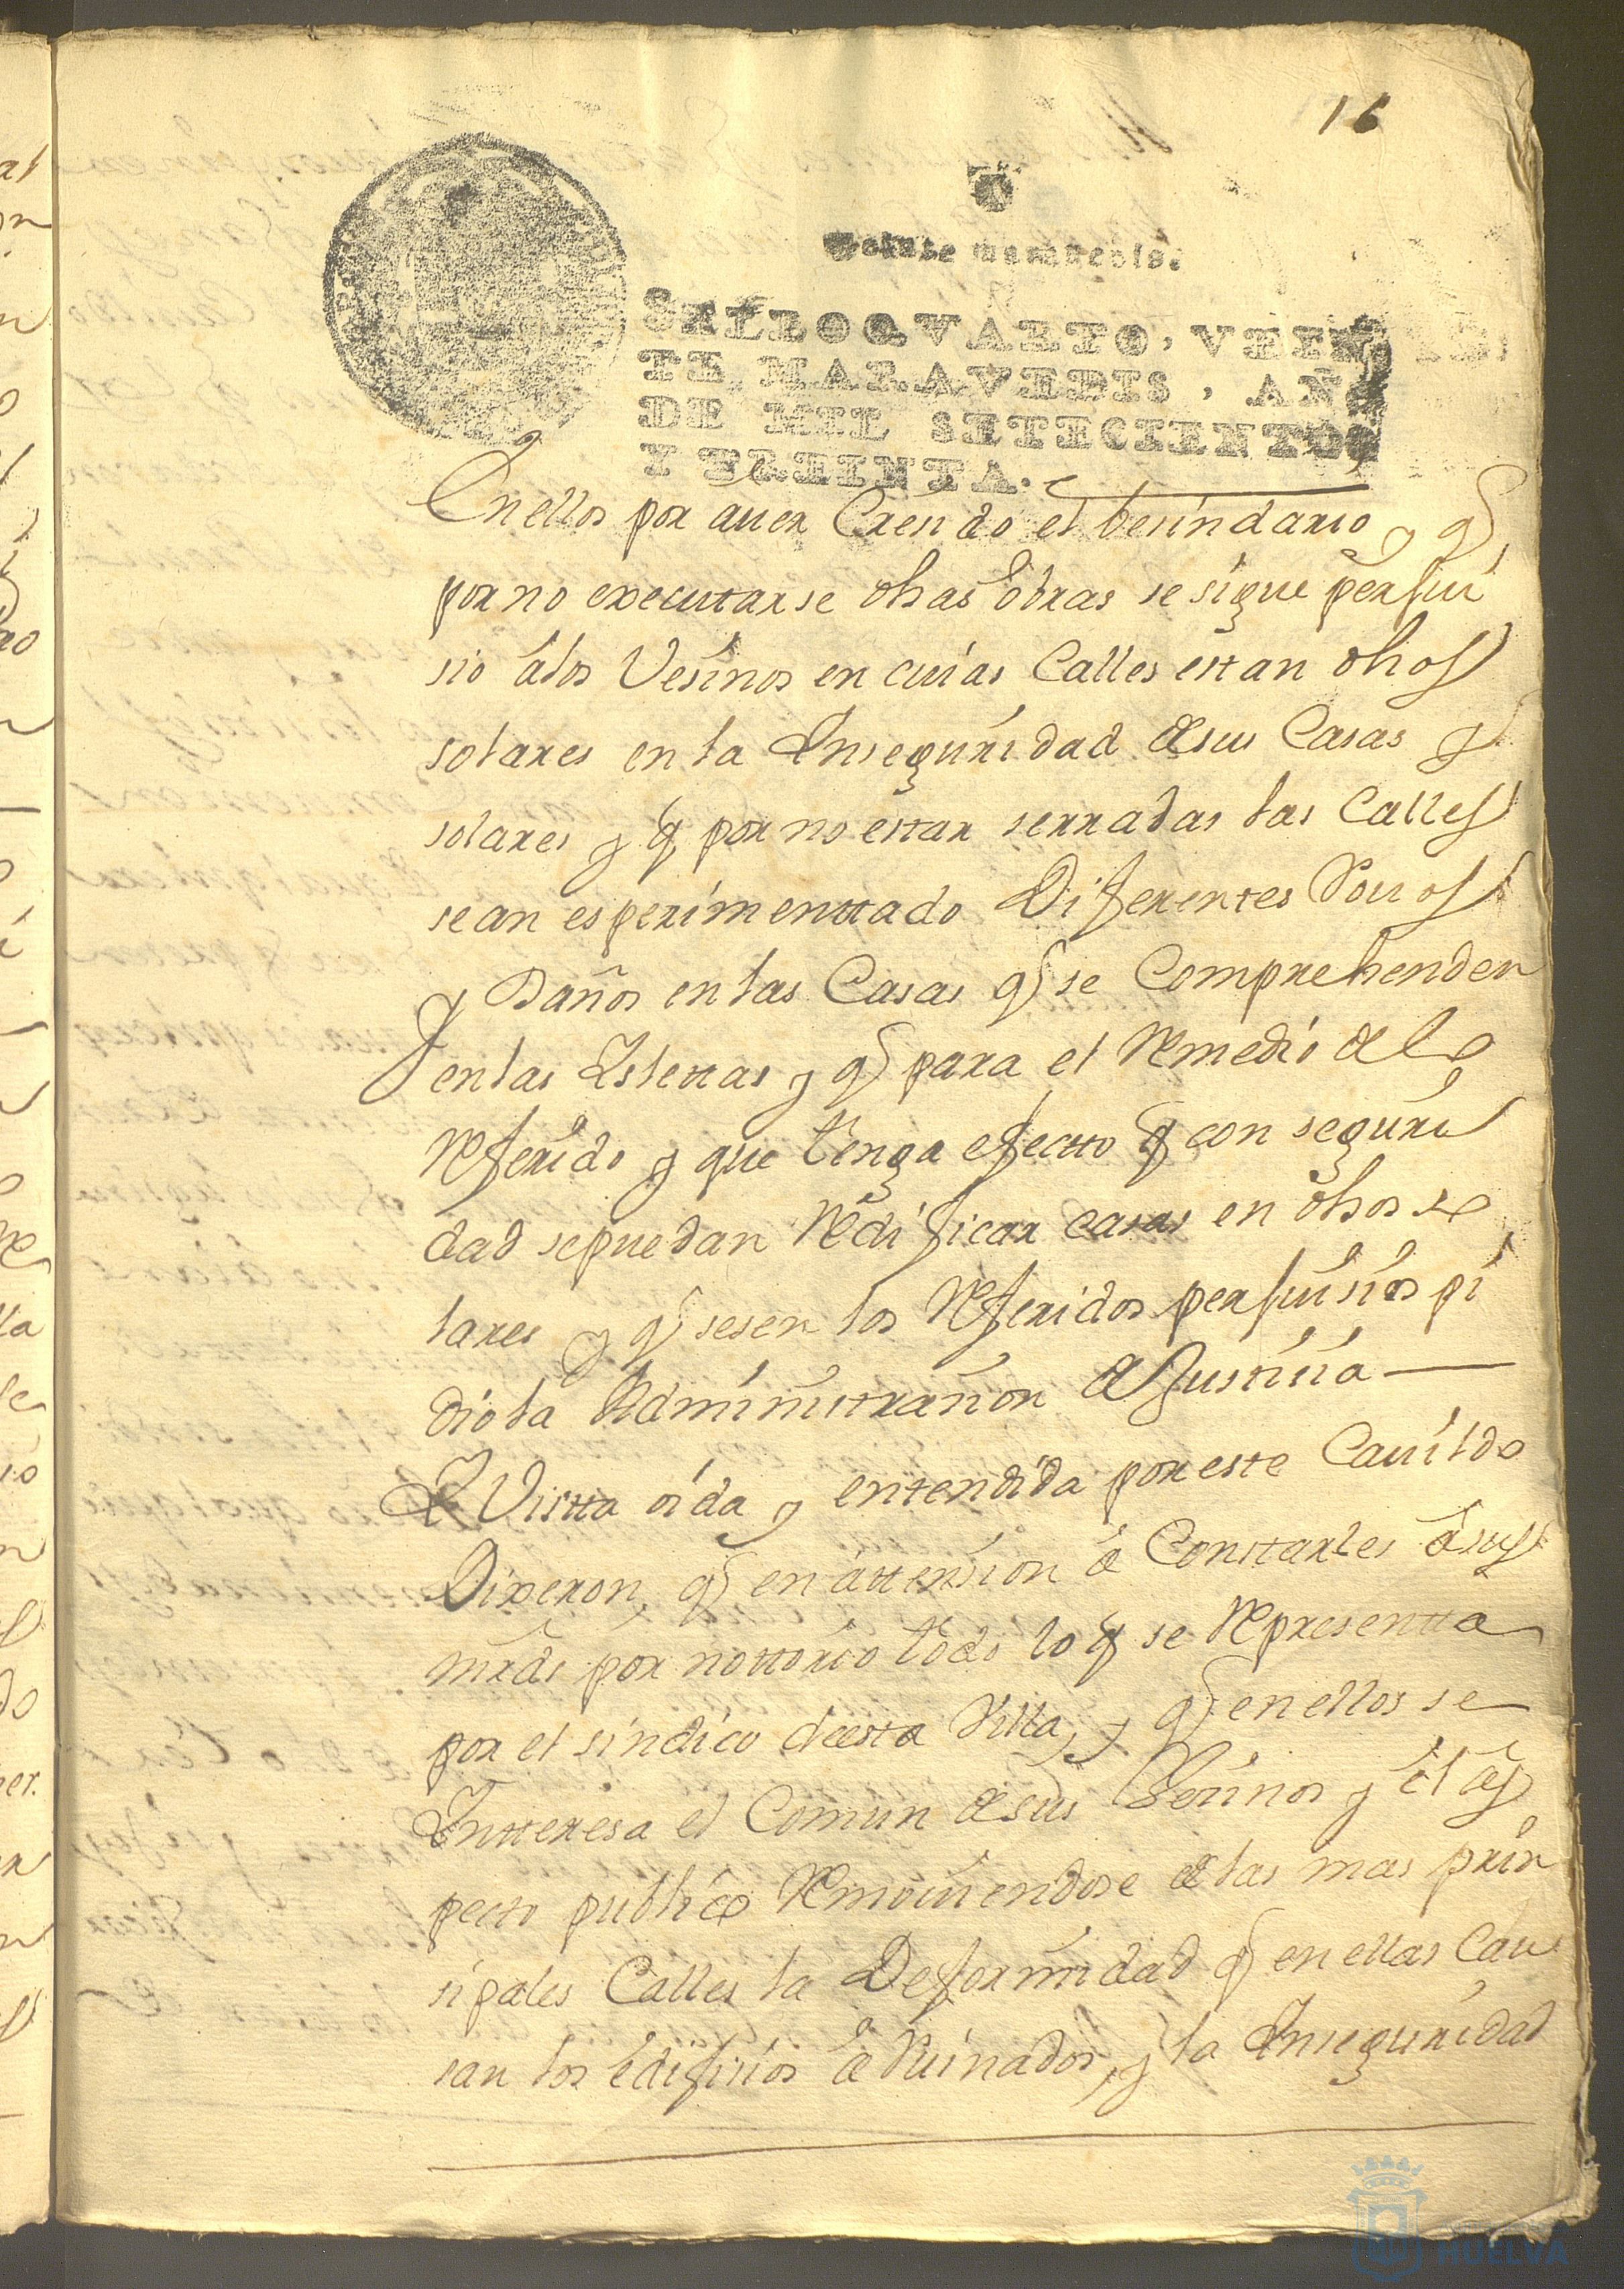 16
SELLO QVARTO, VEIN
TE MARAVEDIS, AÑO
DE MIL SETECIENTOS
Y TREINTA.
Enellos por auer Cresido el besindario y q
por no executarse dhas obras se sigue perjui
sio a los Vesinos en cuias Calles estan dhos
solares en la Inseguridad de sus Casas y
solares y q por no estar serradas las Calles
se an esperimenttado Diferentes Rouos
y Daños en las Casas q se Comprehenden
en las Isletas y q para el Remedio de lo
Referido y que tenga efectto q con seguri
dad se puedan Redificar casas en dhos so
lares y q sesen los Referidos perjuisios pi
dio la Administrasion de Justisia
E Vistta oida y entendida por este Cauildo
Dixeron, q en attension a Constarles a sus
mrds por nottorio todo lo q se Representta
por el sindico de esta Villa, y q en ellos se
Intteresa el Comun de sus Vesinos y el as
pecto publico Remouiendose de las mas prin
sipales Calles la Deformidad q en ellas Cau
san los edifisios aRuinados, y la Inseguridad
HUELVA